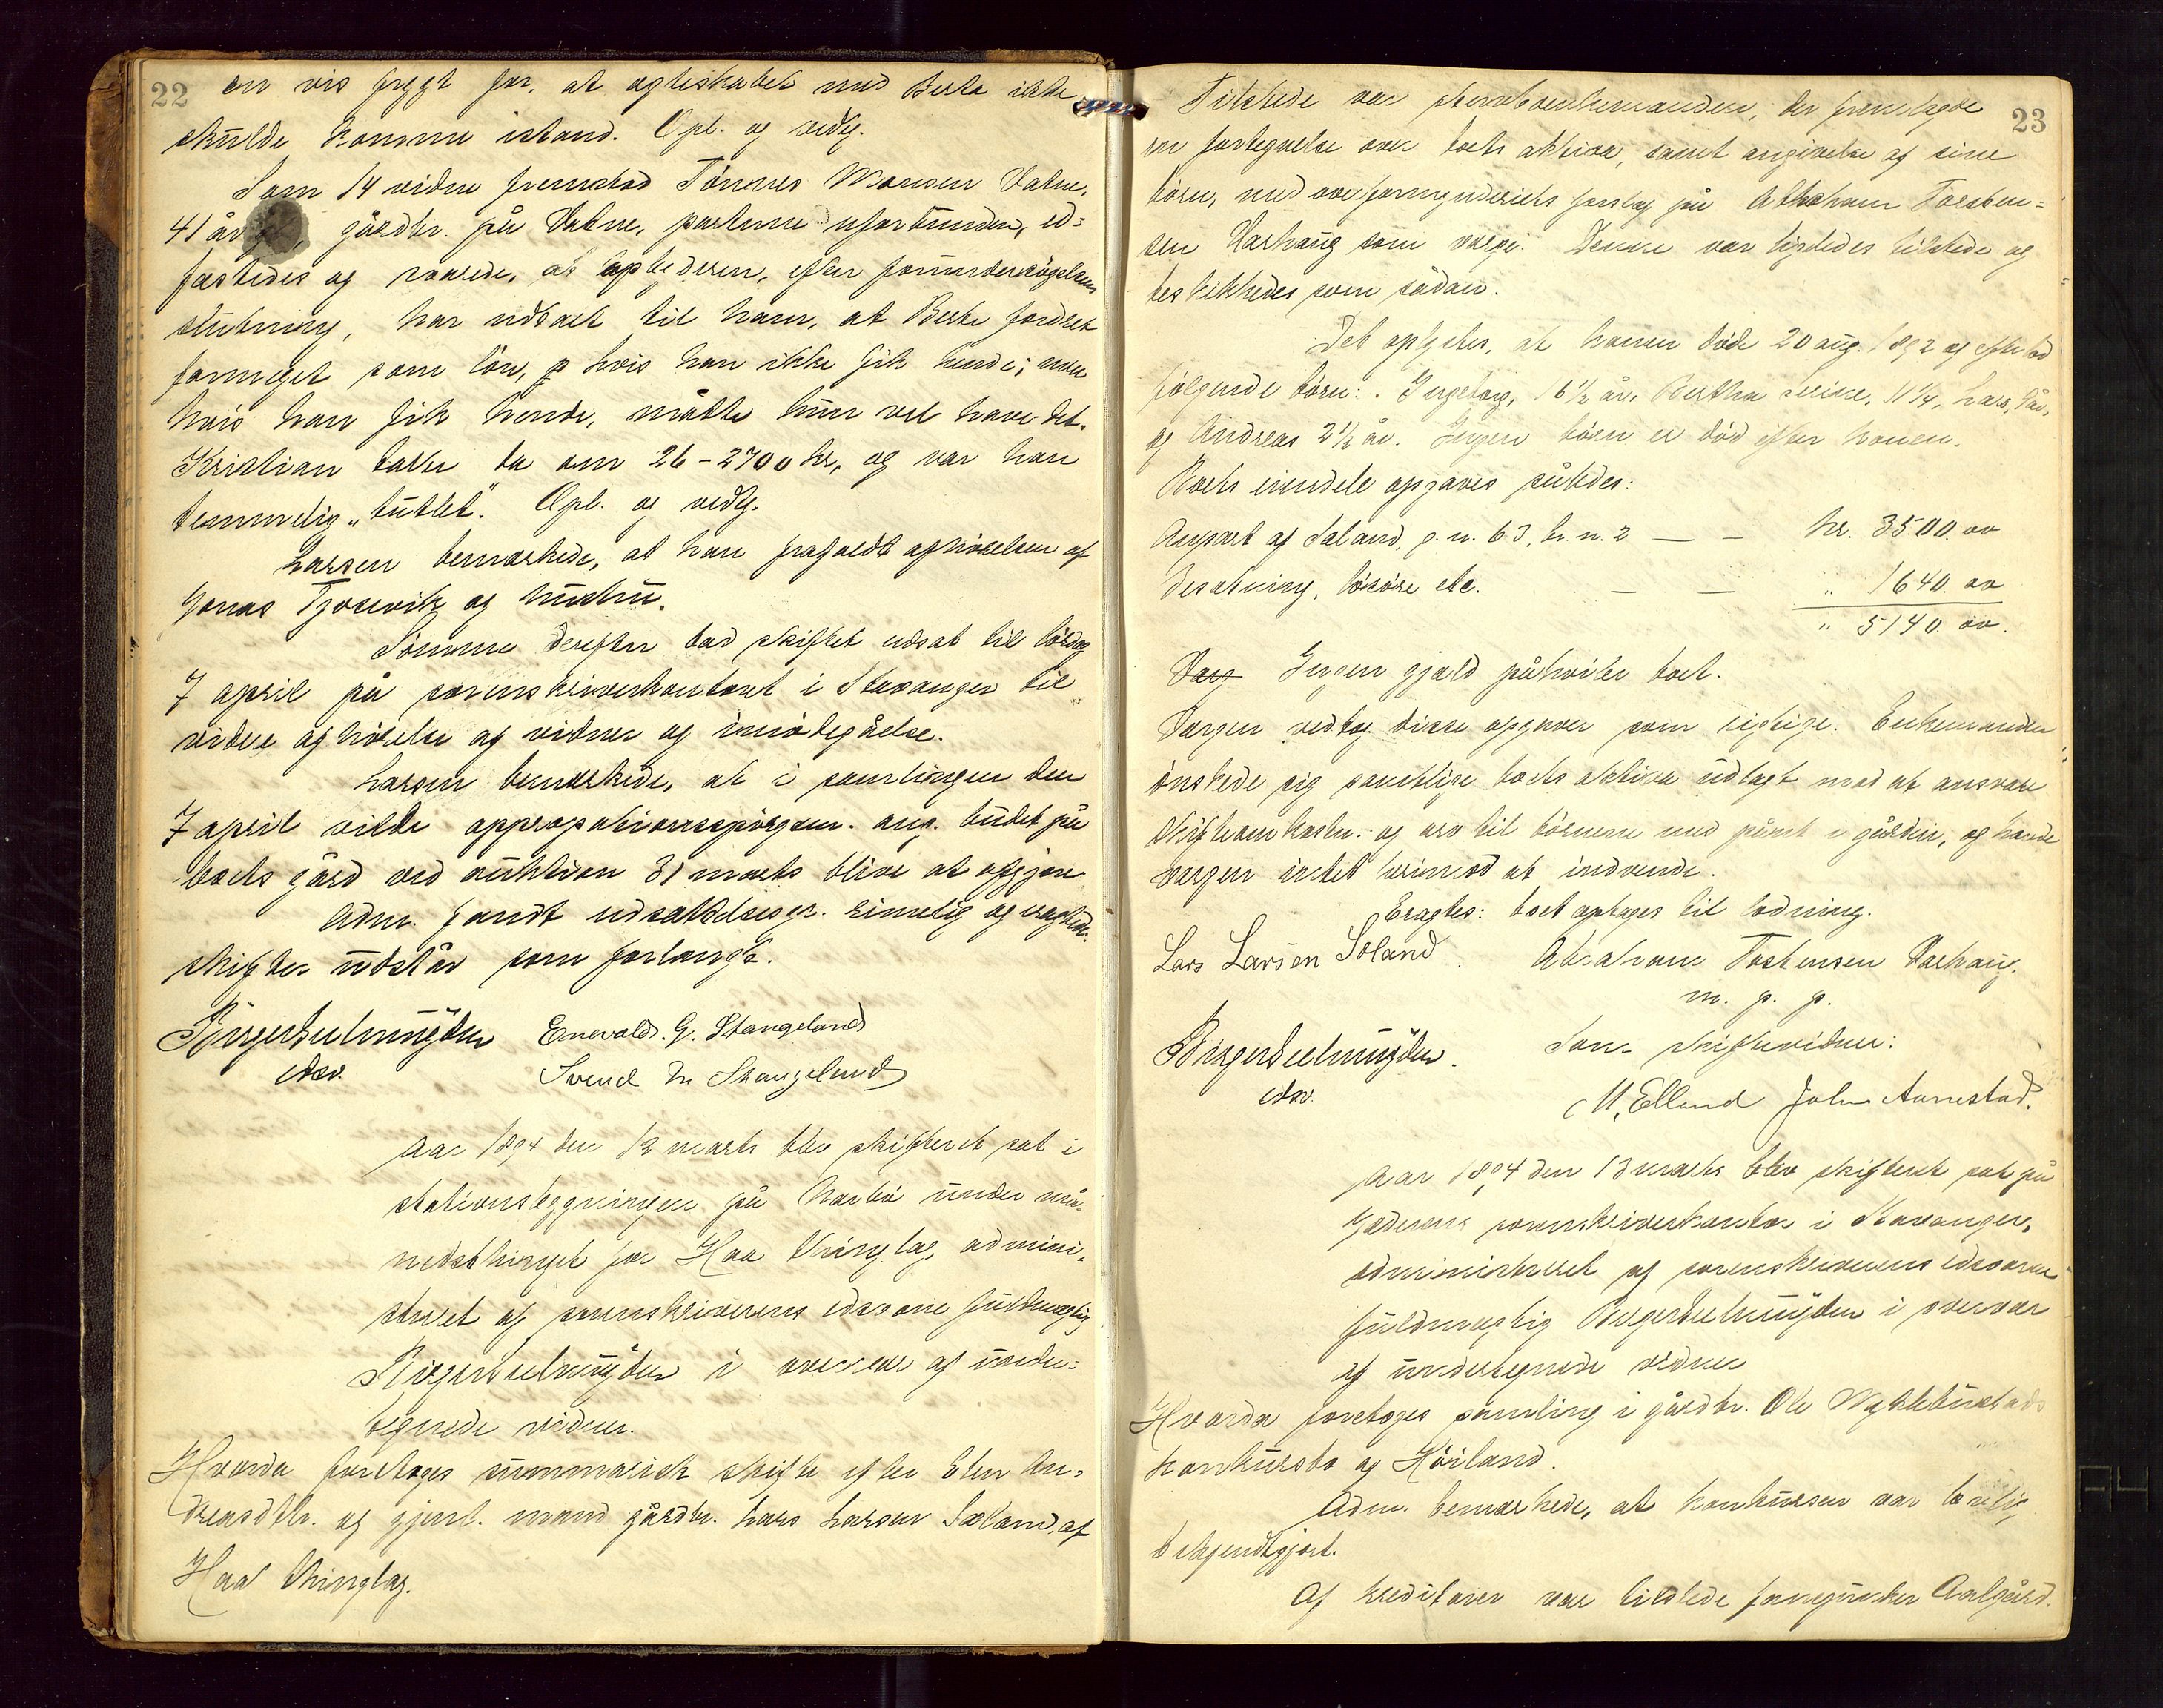 22
en vis frygt for, at ægteskabet med Berte ikke
skulde komme istand. Opl. og vedg.
Som 14 vidne fremstod Tönnes Monsen Vatne,
41 år gl, gårdbr. på Vatne, parterne uforbunden, ed=
fæstedes og svarede, at efter forundersögelsens
slutning, har udtalt til ham, at Berte fordret
formeget som lön, hvis han ikke fik hende; men
hvis han fik hende, måtte hun vel have det.
Kristian talte da om 26-2700 kr, og var han
temmelig „tutlet". Opl. og vedg.
Larsen bemærkede, at han frafaldt afhörelsen af
Jonas Tjosevik og hustru.
Sömme derefter bad skiftet udsat til lördag
7 april på sorenskriverkontoret i Stavanger til
videre afhörelse af vidner og imödegåelse.
Larsen bemærkede, at i samlingen den
7 april vilde approbationsspörgsm. ang. budet på
boets gård ved auktion 31 marts blive at afgjöre
Adm. fandt udsættelsesgr. rimelig og eragtede:
skiftet udstår som forlangt.
Birger Delmuyden Enevald. G. Stangeland
edsv. Svend M Stangeland
Aar 1894 den 13 marts blev skifteret sat i
stationsbygningen på Narbö under må=
nedsthinget for Haa thinglag, admini=
streret af sorenskriverens edsvorne fuldmægtig
Birger Delmuyden i overvær af under=
tegnede vidner.
Hvorda foretoges summarisk skifte efter Elen An=
dreasdtr. og gjenl. mand gårdbr. Lars Larsen Söland, af
Haa thinglag.
23
Tilstede var sterboenkemanden, der fremlagde
en fortegnelse over boets aktiva, samt angivelse af sine
börn, med overformynderiets forslag på Abraham Torsten=
sen Varhaug som værge. Denne var ligeledes tilstede og
beskikkedes som sådan.
Det oplystes, at konen döde 20 aug. 1892 og efterlod
fölgende börn: Ingeborg, 16 1/2 år, Bertha Serine, 11 1/4, Lars,
og Andreas 2 1/2 år. Ingen börn er död efter konen.
Boets eiendele opgaves således:
Anpart af Söland, g. n. 63, br. n. 2 — — kr. 3500. oo
Besætning, lösöre etc. — — " 1640. oo
" 5140. oo.
Ingen gjæld påhviler boet.
Værgen vedtog disse opgaver som rigtige. Enkemanden
önskede sig samtlige boets aktiva udlagt mod at ansvare
skifteomkostn. og arv til börnene med pant i gården, og havde
værgen intet herimod at indvende.
Eragtes: boet optages til lodning.
Lars Larsen Söland. Abraham Tostensen Varhaug.
m. p. p.
Birger Delmuyden. Som skiftevidner:
edsv. M, Elland John Aarrestad.
Aar 1894 den 13 marts blev skifteret sat på
Jæderens sorenskriverkontor i Stavanger,
administreret af sorenskriverens edsvorne
fuldmægtig Birger Delmuyden i overvær
af undertegnede vidner
Hvorda foretoges samling i gårdbr. Ole
konkursbo af Höiland.
Adm. bemærkede, at konkursen var lovlig
bekjendtgjort.
Af kreditorer var tilstede Aalgård.